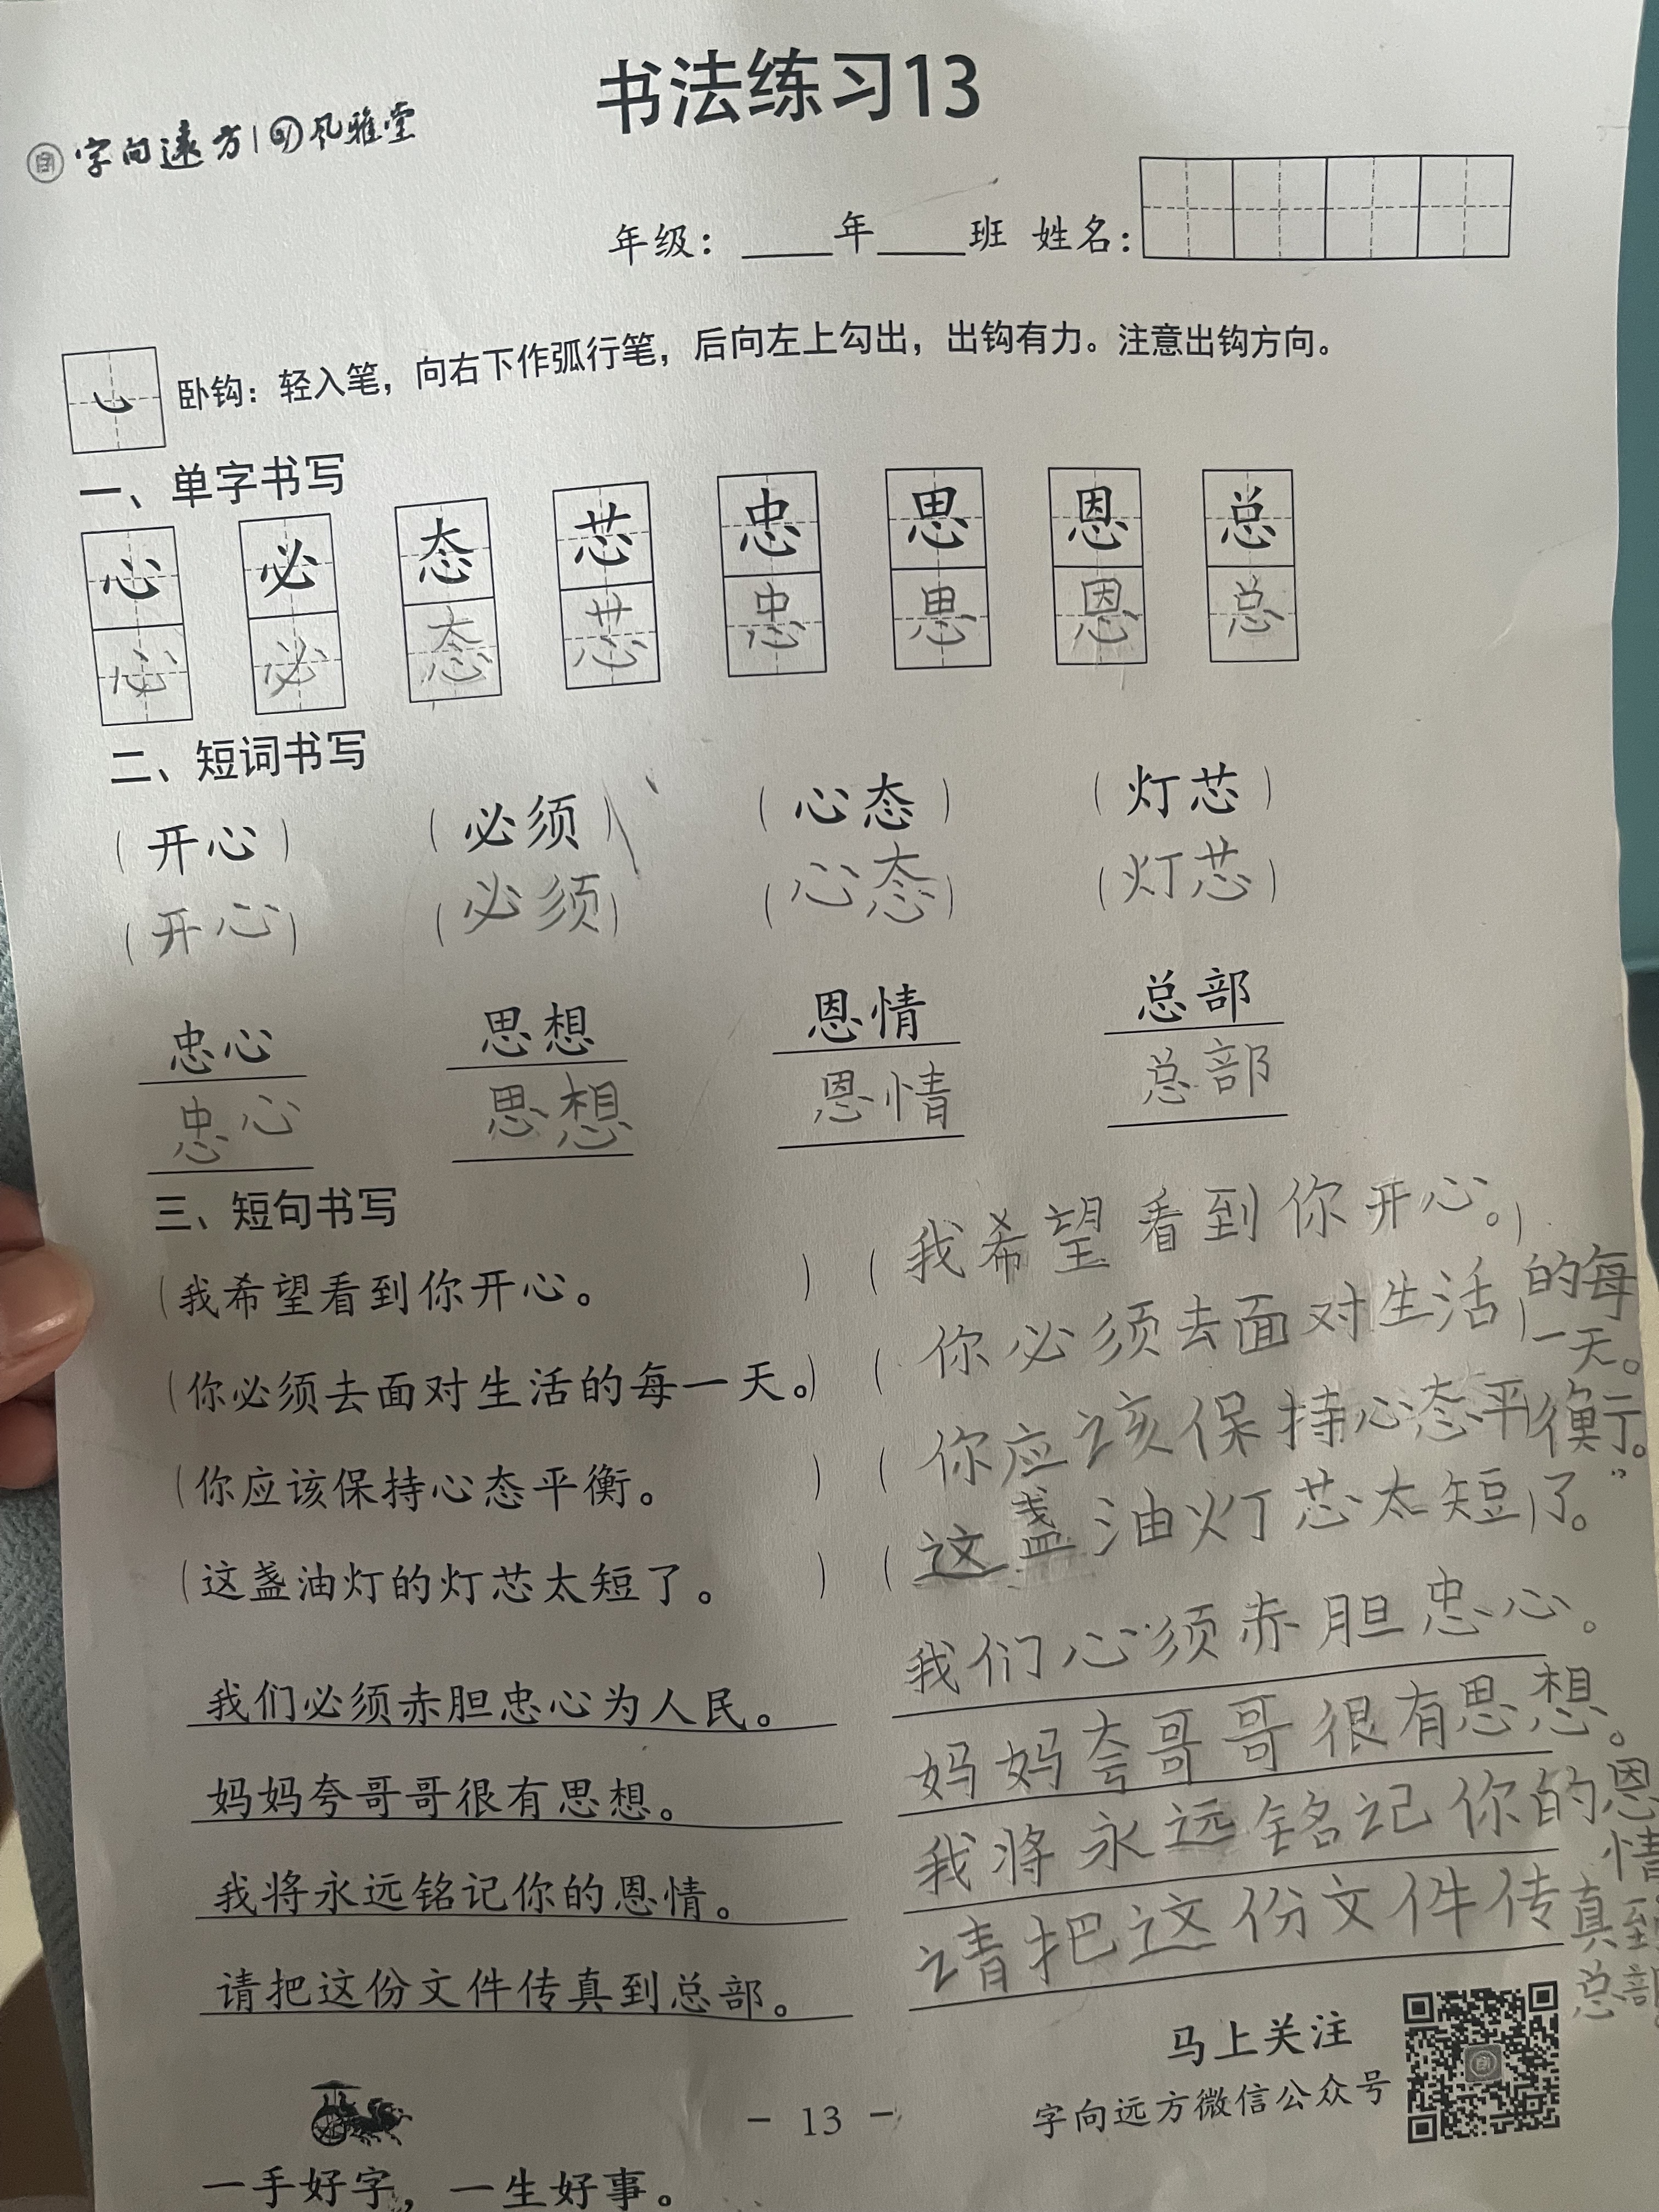 书法练习13
字向远方 风雅堂
年级：____年____班 姓名：
卧钩：轻入笔，向右下作弧行笔，后向左上勾出，出钩有力。注意出钩方向。
一、单字书写
心 必 态 芯 忠 思 恩 总
心 必 态 芯 忠 思 恩 总
二、短词书写
（开心） （必须） （心态） （灯芯）
（开心） （必须） （心态） （灯芯）
忠心 思想 恩情 总部
忠心 思想 恩情 总部
三、短句书写
（我希望看到你开心。） （我希望看到你开心。）
（你必须去面对生活的每一天。） （你必须去面对生活）的每
一天。
（你应该保持心态平衡。） （你应该保持心态平衡。
（这盏油灯的灯芯太短了。） （这盏油灯芯太短）了。
我们必须赤胆忠心为人民。 我们心须赤胆忠心。
妈妈夸哥哥很有思想。 妈妈夸哥哥很有思想。
我将永远铭记你的恩情。 我将永远铭记你的恩
情
请把这份文件传真到总部。 请把这份文件传真到
总部。
马上关注
字向远方微信公众号
- 13 -
一手好字，一生好事。